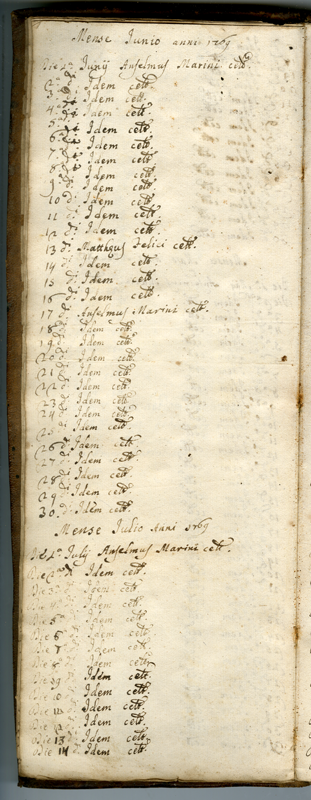 Mense Junio anni 1769
Die 1ª Junij Anselmus Marini cel̃t.
2 dì Idem cel̃t.
3 dì Idem cel̃t.
4 dì Idem cel̃t.
5 dì Idem cel̃t.
6 dì Idem cel̃t.
7 dì Idem cel̃t.
8 dì Idem cel̃t.
9 dì Idem cel̃t.
10 dì Idem cel̃t.
11 dì Idem cel̃t.
12 dì Idem cel̃t.
13 dì Mattheus Felici cel̃t.
14 dì Idem cel̃t.
15 dì Idem cel̃t.
16 dì Idem cel̃t.
17 dì Anselmus Marini cel̃t.
18 dì Idem cel̃t.
19 dì Idem cel̃t.
20 dì Idem cel̃t.
21 dì Idem cel̃t.
22 dì Idem cel̃t.
23 dì Idem cel̃t.
24 dì Idem cel̃t.
25 dì Idem cel̃t.
26 dì Idem cel̃t.
27 dì Idem cel̃t.
28 dì Idem cel̃t.
29 dì Idem cel̃t.
30 dì Idem cel̃t.
Mense Julio Anni 1769
Die 1ª Julij Anselmus Marini cel̃t.
Die 2ª Idem cel̃t.
Die 3ª Idem cel̃t.
Die 4ª Idem cel̃t.
Die 5ª Idem cel̃t.
Die 6 Idem cel̃t.
Die 7 Idem cel̃t.
Die 8 Idem cel̃t.
Die 9 Idem cel̃t.
Die 10 Idem cel̃t.
Die 11 Idem cel̃t.
Die 12 Idem cel̃t.
Die 13 Idem cel̃t.
Die 14 Idem cel̃t.